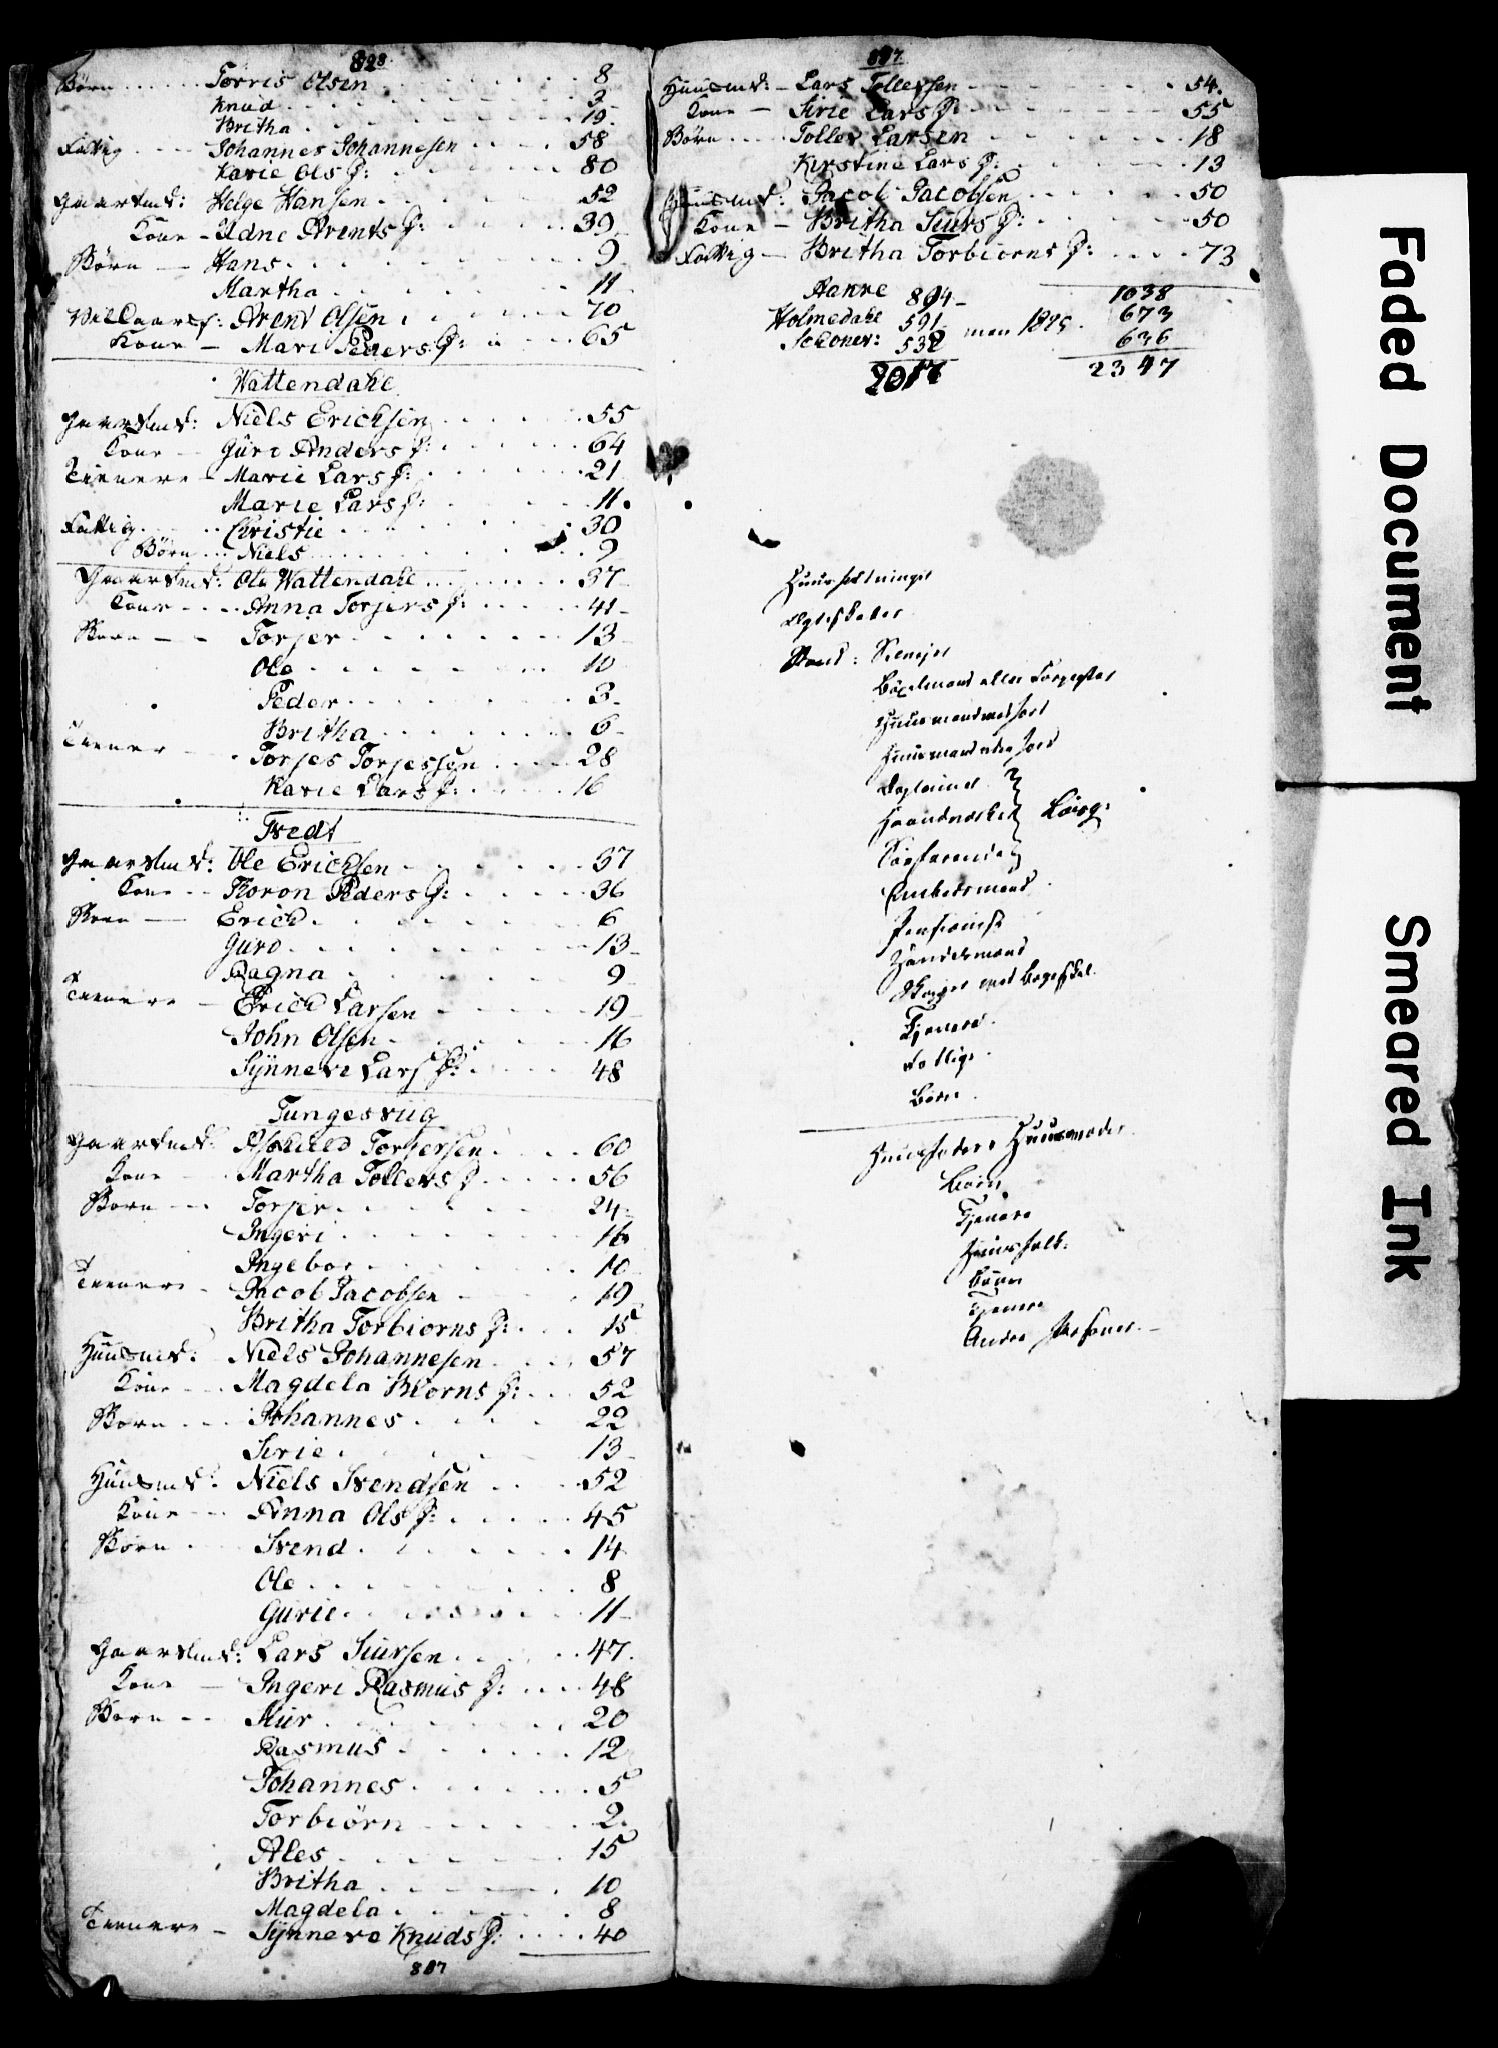 828
Børn Torris Olsen 8
Knud 3
Britha 19
Fattig Johannes Johannesen 58
Karie Ols D: 80
Gaardmd: Helge Hansen 52
Kone Udne Arents D: 39
Børn Hans 9
Martha 11
Arent Olsen 70
Kone Mari Peders D: 65
Wattendahl
Gaardmd: Niels Erichsen 55
Kone Guri Anders D: 64
Tienere Marie Lars D: 21
Marie Lars D: 11
Fattig Christie 30
Børn Niels 9
Gaardmd: Ole Wattendahl 37
Kone Anna Torjers D: 41
Børn Torjer 13
Ole 10
Peder 3
Britha 6
Tiener Torjes Torjessen 28
Karie Lars D: 16
Tvedt
Gaardmd: Ole Erichsen 37
Kone Thoron Peders D: 36
Børn Erich 6
Guro 13
Ragna 9
Tienere Erich Larsen 19
John Olsen 16
Synneve Lars D: 48
Tungesvug
Gaardmd: Torjersen 60
Kone Martha Tollevs D 56
Børn Torjer 24
Ingeri 16
Ingebor 10
Tienere Jacob Jacobsen 19
Britha Torbiorns D: 15
Huusmd: Niels Johannesen 57
Kone Magdela Biorns D: 52
Børn Johannes 22
Sirie 13
Huusmd: Niels Svendsen 52
Kone Anna Ols D: 45
Børn Svend 14
Ole 8
Gurie 11
Gaardmd: Lars Siursen 47
Kone Ingeri Rasmus D: 48
Børn Siur 20
Rasmus 12
Johannes 5
Torbiørn 2
Ales 15
Britha 10
Magdela 8
Tienere Synneve Knuds D: 40
807
807
Huusmd: Lars Tollefsen 54
Kone Sirie Lars D: 55
Børn Tollev Larsen 18
Kirstine Lars D: 13
Huusmd: Jacob Jacobsen 50
Kone Britha Siurs D: 50
Fattig Britha Torbiorns D: 73
Aanre 894 1038
Holmedahl 591 673
Scholner: 532 636
2017 2347
Huusmand med Jord
Huusmand uden Jord
Daglejere
Embedsmand
Pensionist
Handelsmand
Tjenere
Fattige
Børn
Huusfader Huusmoder
Børn
Tjenere
Huusfolk:
Børn
Tjenere
Andre Personer
Faded Document
Smeared Ink